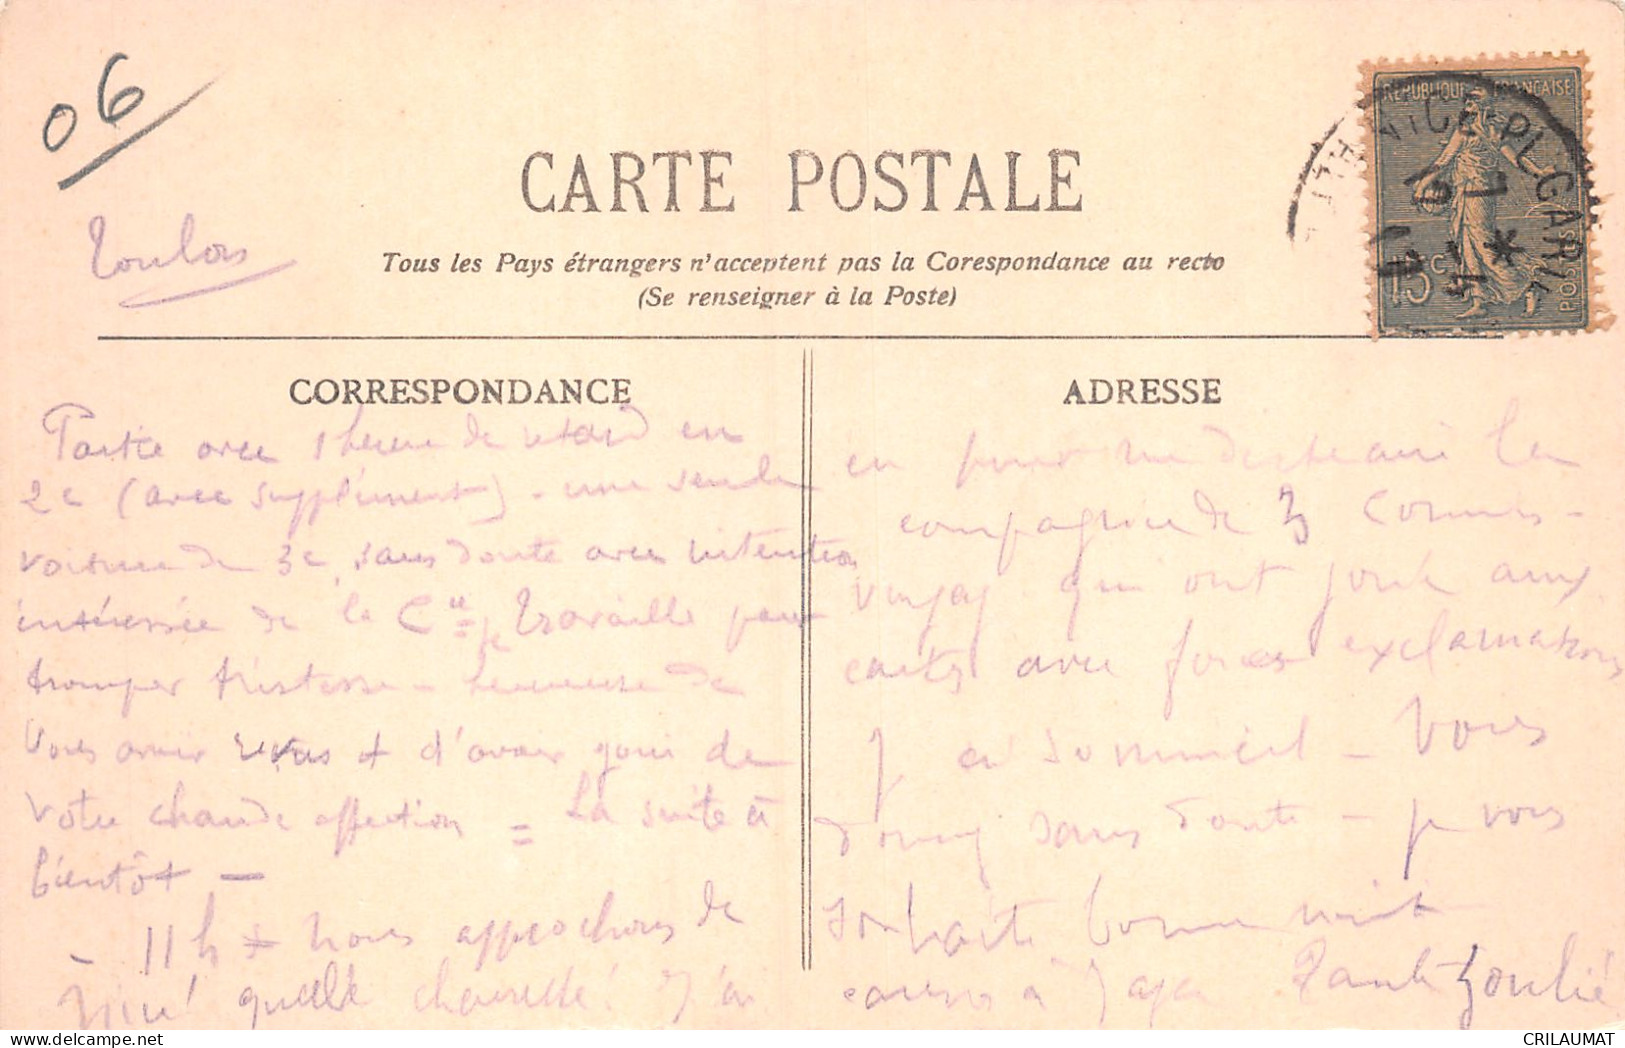 06
Toulon
CARTE POSTALE
Tous les Pays étrangers n'acceptent pas la Corespondance au recto
(Se renseigner à la Poste)
RÉPUBLIQUE FRANÇAISE
POSTES
15c
NICE PL. GRIMALDI
CORRESPONDANCE
ADRESSE
Partie avec 1 heure de retard en
2e (avec supplément) - une seule
voiture de 3e, sans doute avec intention
intéressée de la Cie = je travaille pour
tromper tristesse - heureuse de
vous avoir revus + d'avoir joui de
votre chaude affection = La suite à
bientôt -
- 11h + nous approchons de
quelle chaleur! J'ai
en pour la
compagnie de 3 Commis-
voyag qui ont joué aux
cartes avec forces exclamations
J ai sommeil - Vous
dormez sans doute - je vous
souhaite bonne nuit
à Zoulié
CRILAUMAT